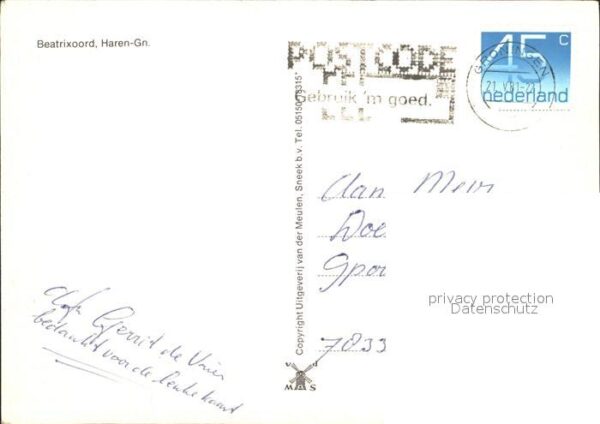 Beatrixoord, Haren-Gn.
POSTCODE
Gebruik 'm goed.
GRONINGEN
45 c
nederland
Copyright Uitgeverij van der Meulen, Sneek b.v. Tel. 05150-
Aan Mevr
Doe
Gpoor
7833
privacy protection
Datenschutz
Gerrit de Vries
bedankt voor de leuke kaart